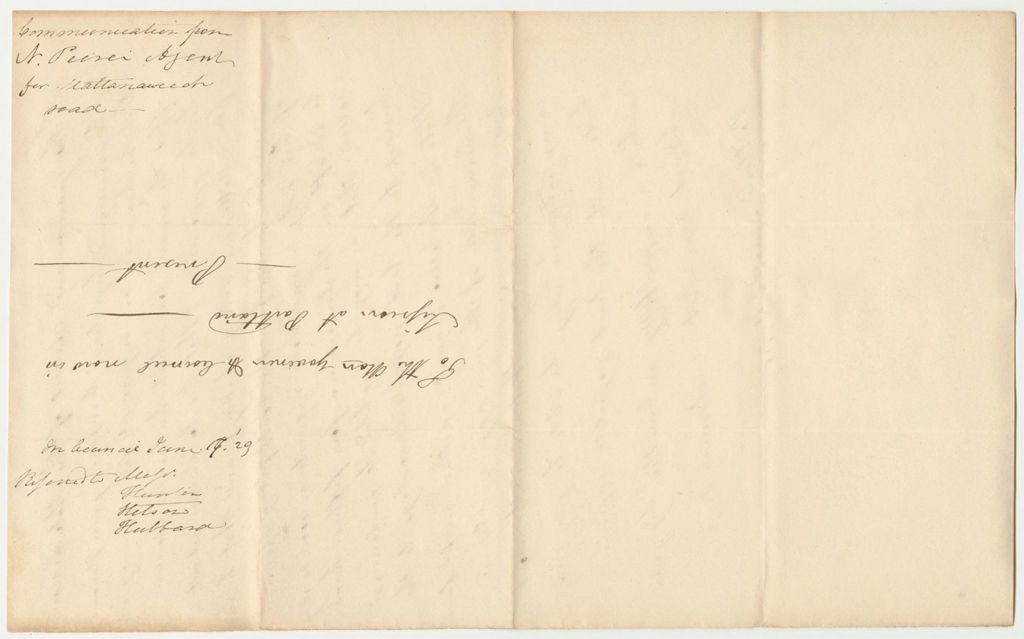 Communication from
N. Peirce Agent
for Mattanawcook
road
To the Hon Governor & Council now in
Session at Portland
Present
In Council Jan 17. '29
Referred to Mess.
Hunter
Hutson
Hubbard